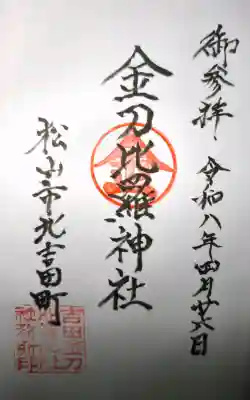 御参拝、令和八年四月廿六日
金刀比羅神社
松山市北吉田町